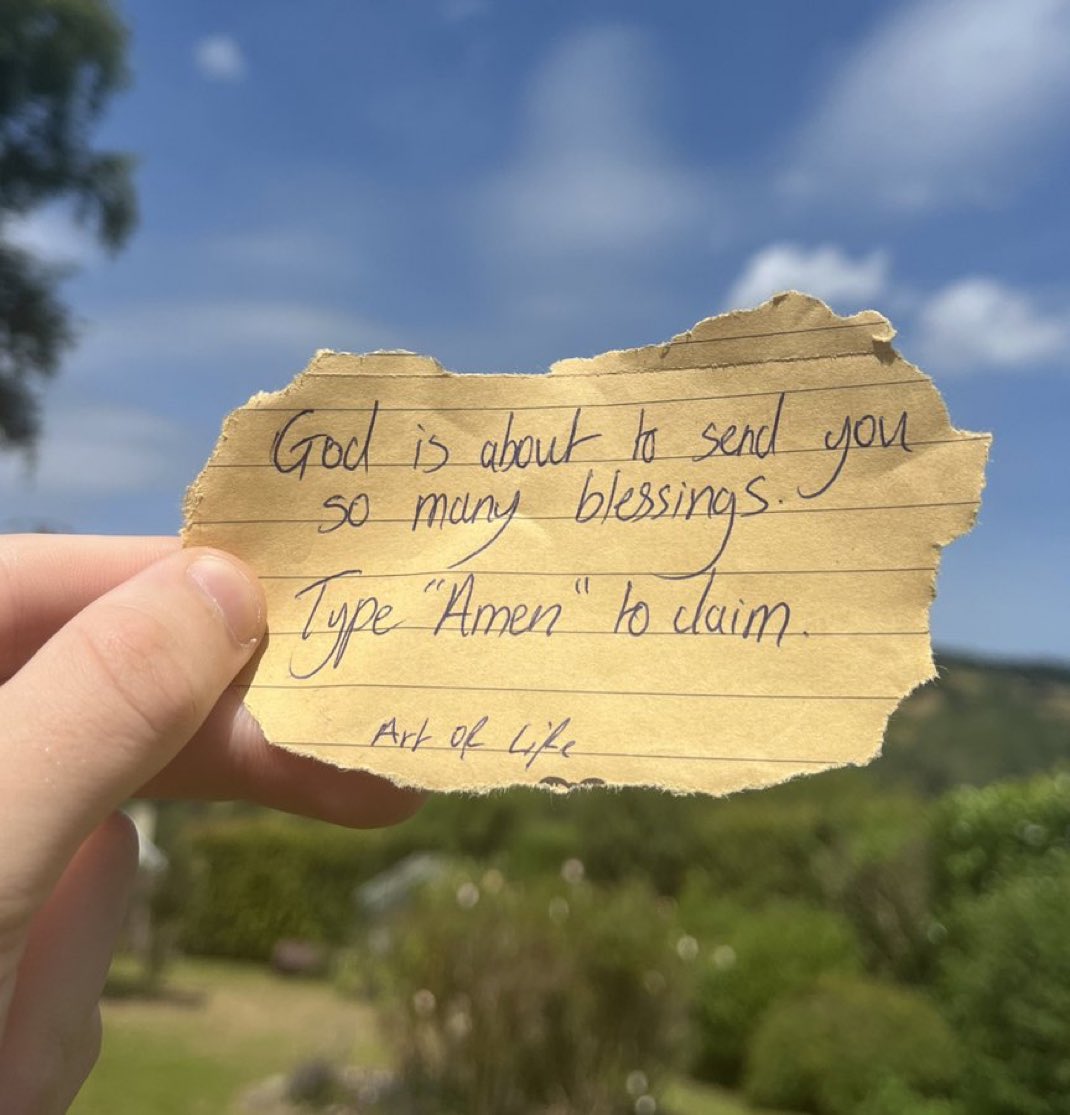 God is about to send you
so many blessings.
Type "Amen" to claim.
Art of Life